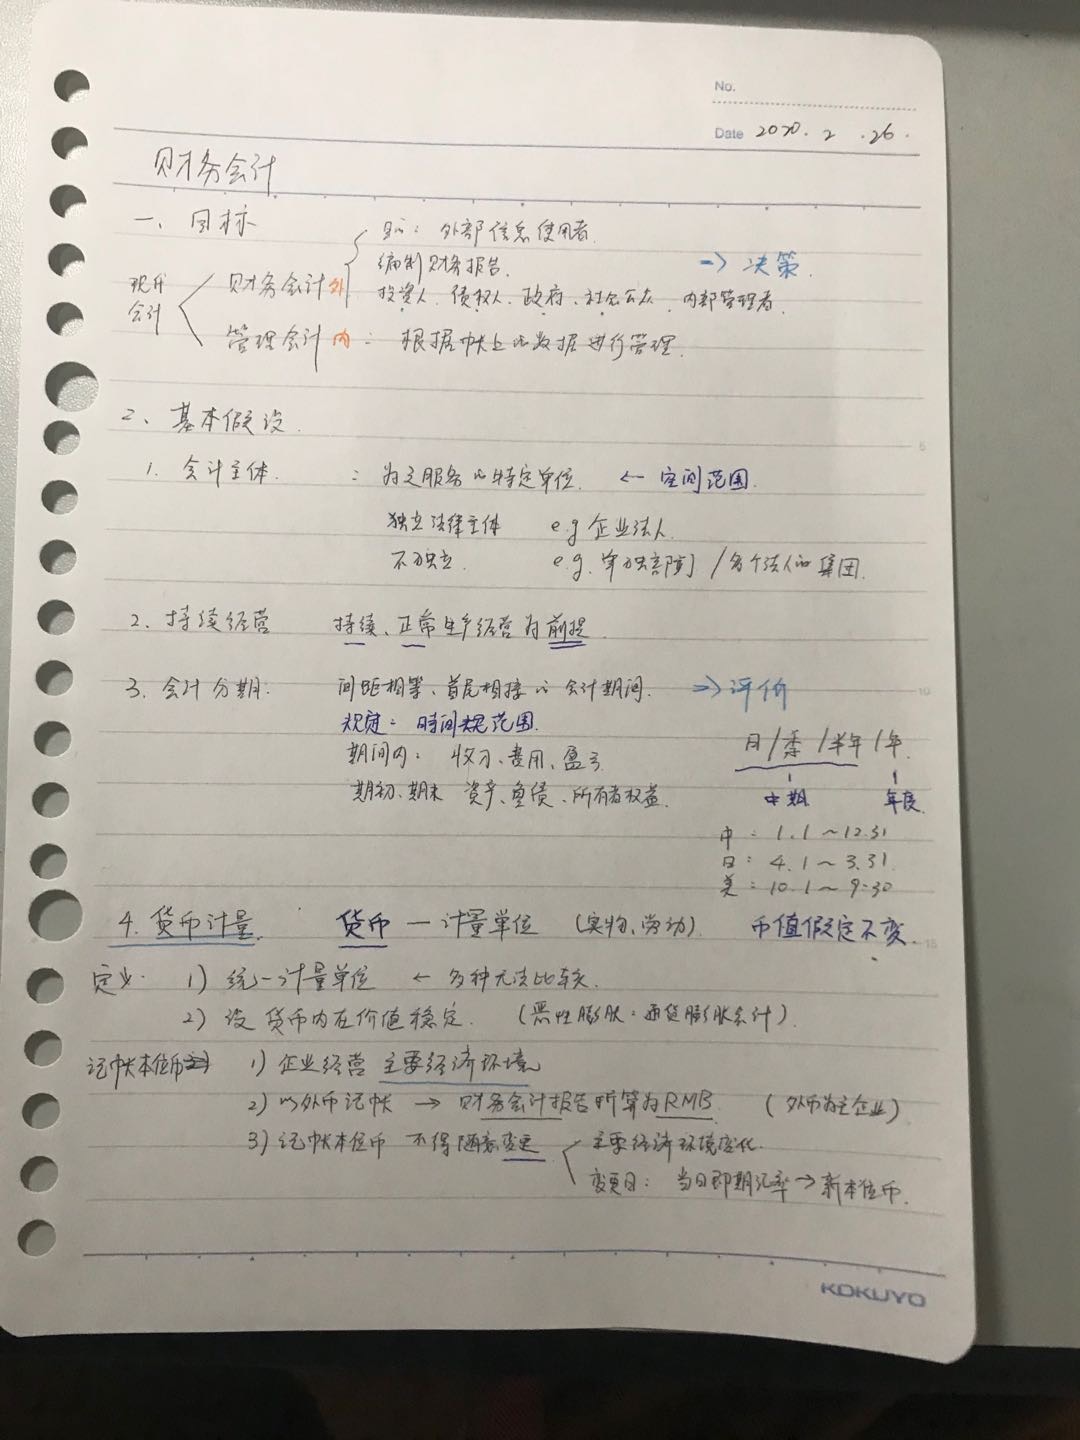 No.
Date 2020.2.26.
财务会计
一、目标
外部信息使用者.
编制财务报告. => 决策.
现代会计 财务会计外 投资人、债权人、政府、社会公众、内部管理者.
管理会计内: 根据帐上的数据进行管理.
2、基本假设.
1. 会计主体. : 为之服务的特定单位. ← 空间范围.
独立法律主体 e.g 企业法人.
不独立. e.g. 单独部门/多个法人的集团.
2. 持续经营 持续、正常生产经营为前提.
3. 会计分期: 间距相等、首尾相接的会计期间. => 评价
规定: 时间范围. 月/季/半年/年.
期间内: 收入、费用、盈亏
期初、期末 资产、负债、所有者权益. 中期. 年度.
中: 1.1~12.31
日: 4.1~3.31.
美: 10.1~9.30
4. 货币计量. 货币 — 计量单位 (实物、劳动). 币值假定不变. 15
定义. 1) 统一计量单位 ← 多种无法比较.
2) 设货币内在价值稳定. (恶性膨胀: 通货膨胀会计).
记帐本位币 1) 企业经营主要经济环境
2) 以外币记帐 → 财务会计报告折算为RMB. (外币为主企业)
3) 记帐本位币 不得随意变更 主要经济环境变化.
变更日: 当日即期汇率→新本位币.
KOKUYO